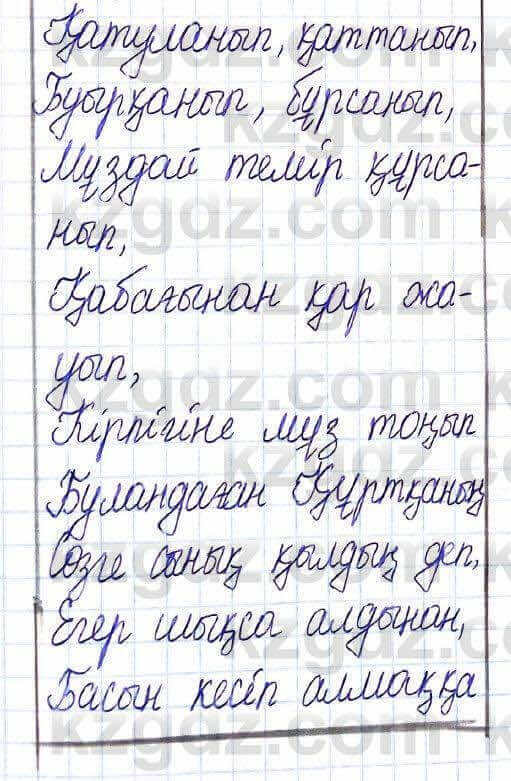 Қатуланып, қаттанып,
Буырқанып, бұрсанып,
Мұздай темір құрса-
нып,
Қабағынан қар жа-
уып,
Кірпігіне мұз тоңып
Буландаған Құртқаның
Сөзге сынық қылдың деп,
Егер шықса алдынан,
Басын кесіп алмаққа